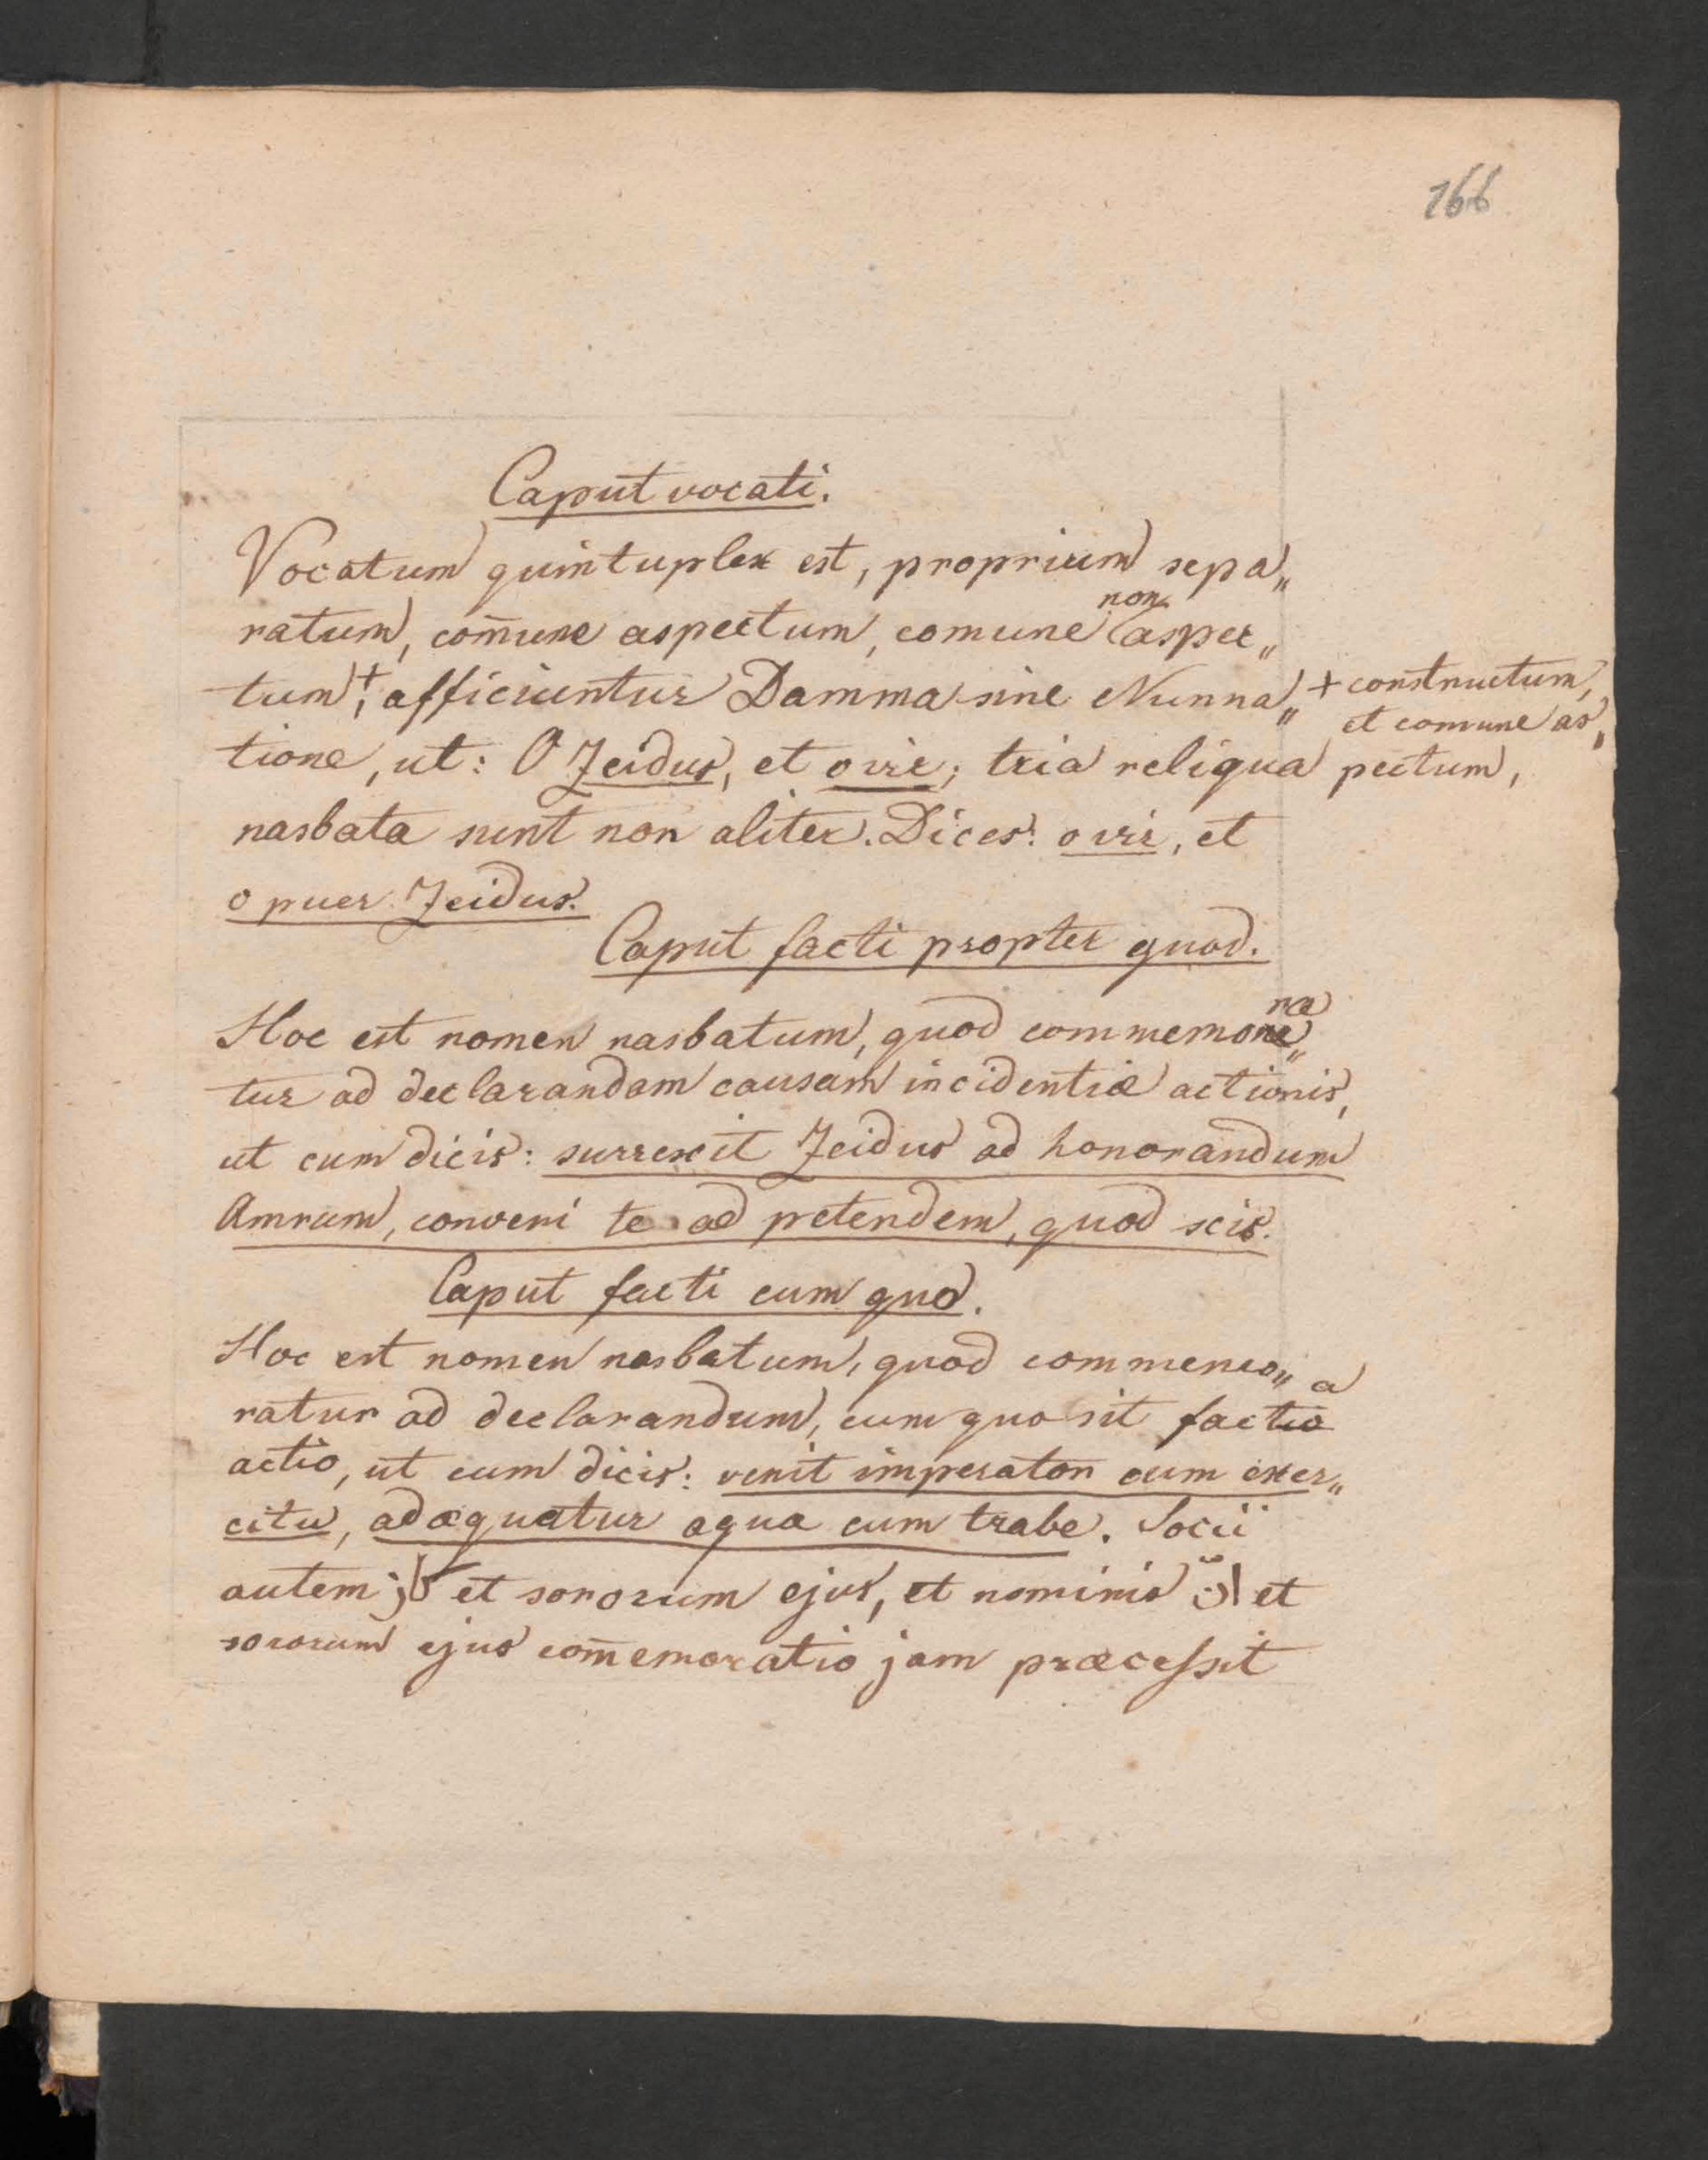 166
Caput vocati.
Vocatum quintuplex est, proprium sepa„
ratum, com̄une aspectum, comune non aspec„
tum,+ afficiuntur Damma sine Nunna„
+ constructum,
et comune as„
pectum,
tione, ut: O Zeidus, et o vir; tria reliqua
nasbata sunt non aliter. Dices: o vir, et
o puer Zeidus.
Caput facti propter quod.
Hoc est nomen nasbatum, quod commemora„
tur ad declarandam causam incidentiæ actionis,
ut cum dicis: surrexit Zeidus ad honorandum
Amrum, conveni te ad petendem, quod scis.
Caput facti cum quo.
Hoc est nomen nasbatum, quod commemo„
ratur ad declarandum, cum quo sit facta
actio, ut cum dicis: venit imperator cum exer„
citu, adæquatur aqua cum trabe. Socii
autem كان et sororum ejus, et nominis انّ et
sororum ejus com̄emoratio jam præcessit